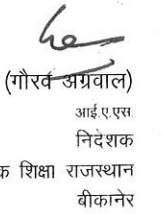 (गौरव अग्रवाल)
आई.ए.एस.
निदेशक
शिक्षा राजस्थान
बीकानेर